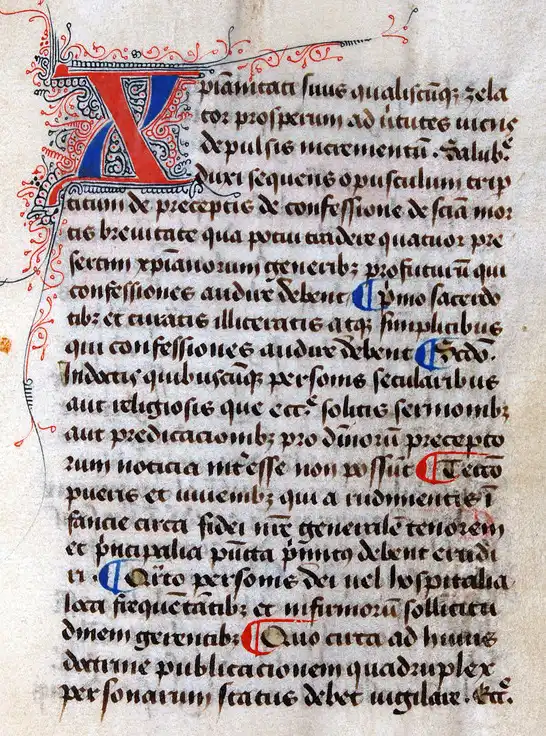 Xpiānitati suus qualiscūqꝫ zela
tor prosperum ad v̓tutes viciis
depulsis incrementū. Salubr̄
duxi sequens opusculum trip
titum de preceptis de confessione de sciā mor
tis breuitate qua potui tradere quatuor pre
sertim xpianorum generibꝫ profuturū qui
confessiones audire debent ¶ Pͥmo sacerdo
tibꝫ et curatis illiteratis atqꝫ simplicibus
qui confessiones audire debent ¶ Scd̄o.
Indoctis quibuscūqꝫ personis secularibus
aut religiosis que eccē solitis sermonibꝫ
aut predicacionibꝫ pro diuinorū precepto
rum noticia int̓esse non possūt ¶ Tercio
pueris et iuuenibꝫ qui a rudimentis ī
fancie circa fidei nr̄e generalē tenorem
et pͥncipalia pūcta pͥmitus debent erudi
ri. ¶ Qͣrto personis dei vel hospitalia
loca frequētātibꝫ et infirmorū sollicitu
dinem gerentibꝫ ¶ Quo circa ad huius
doctrine publicacionem quadruplex
personarum status debet vigilare. Ecc̄